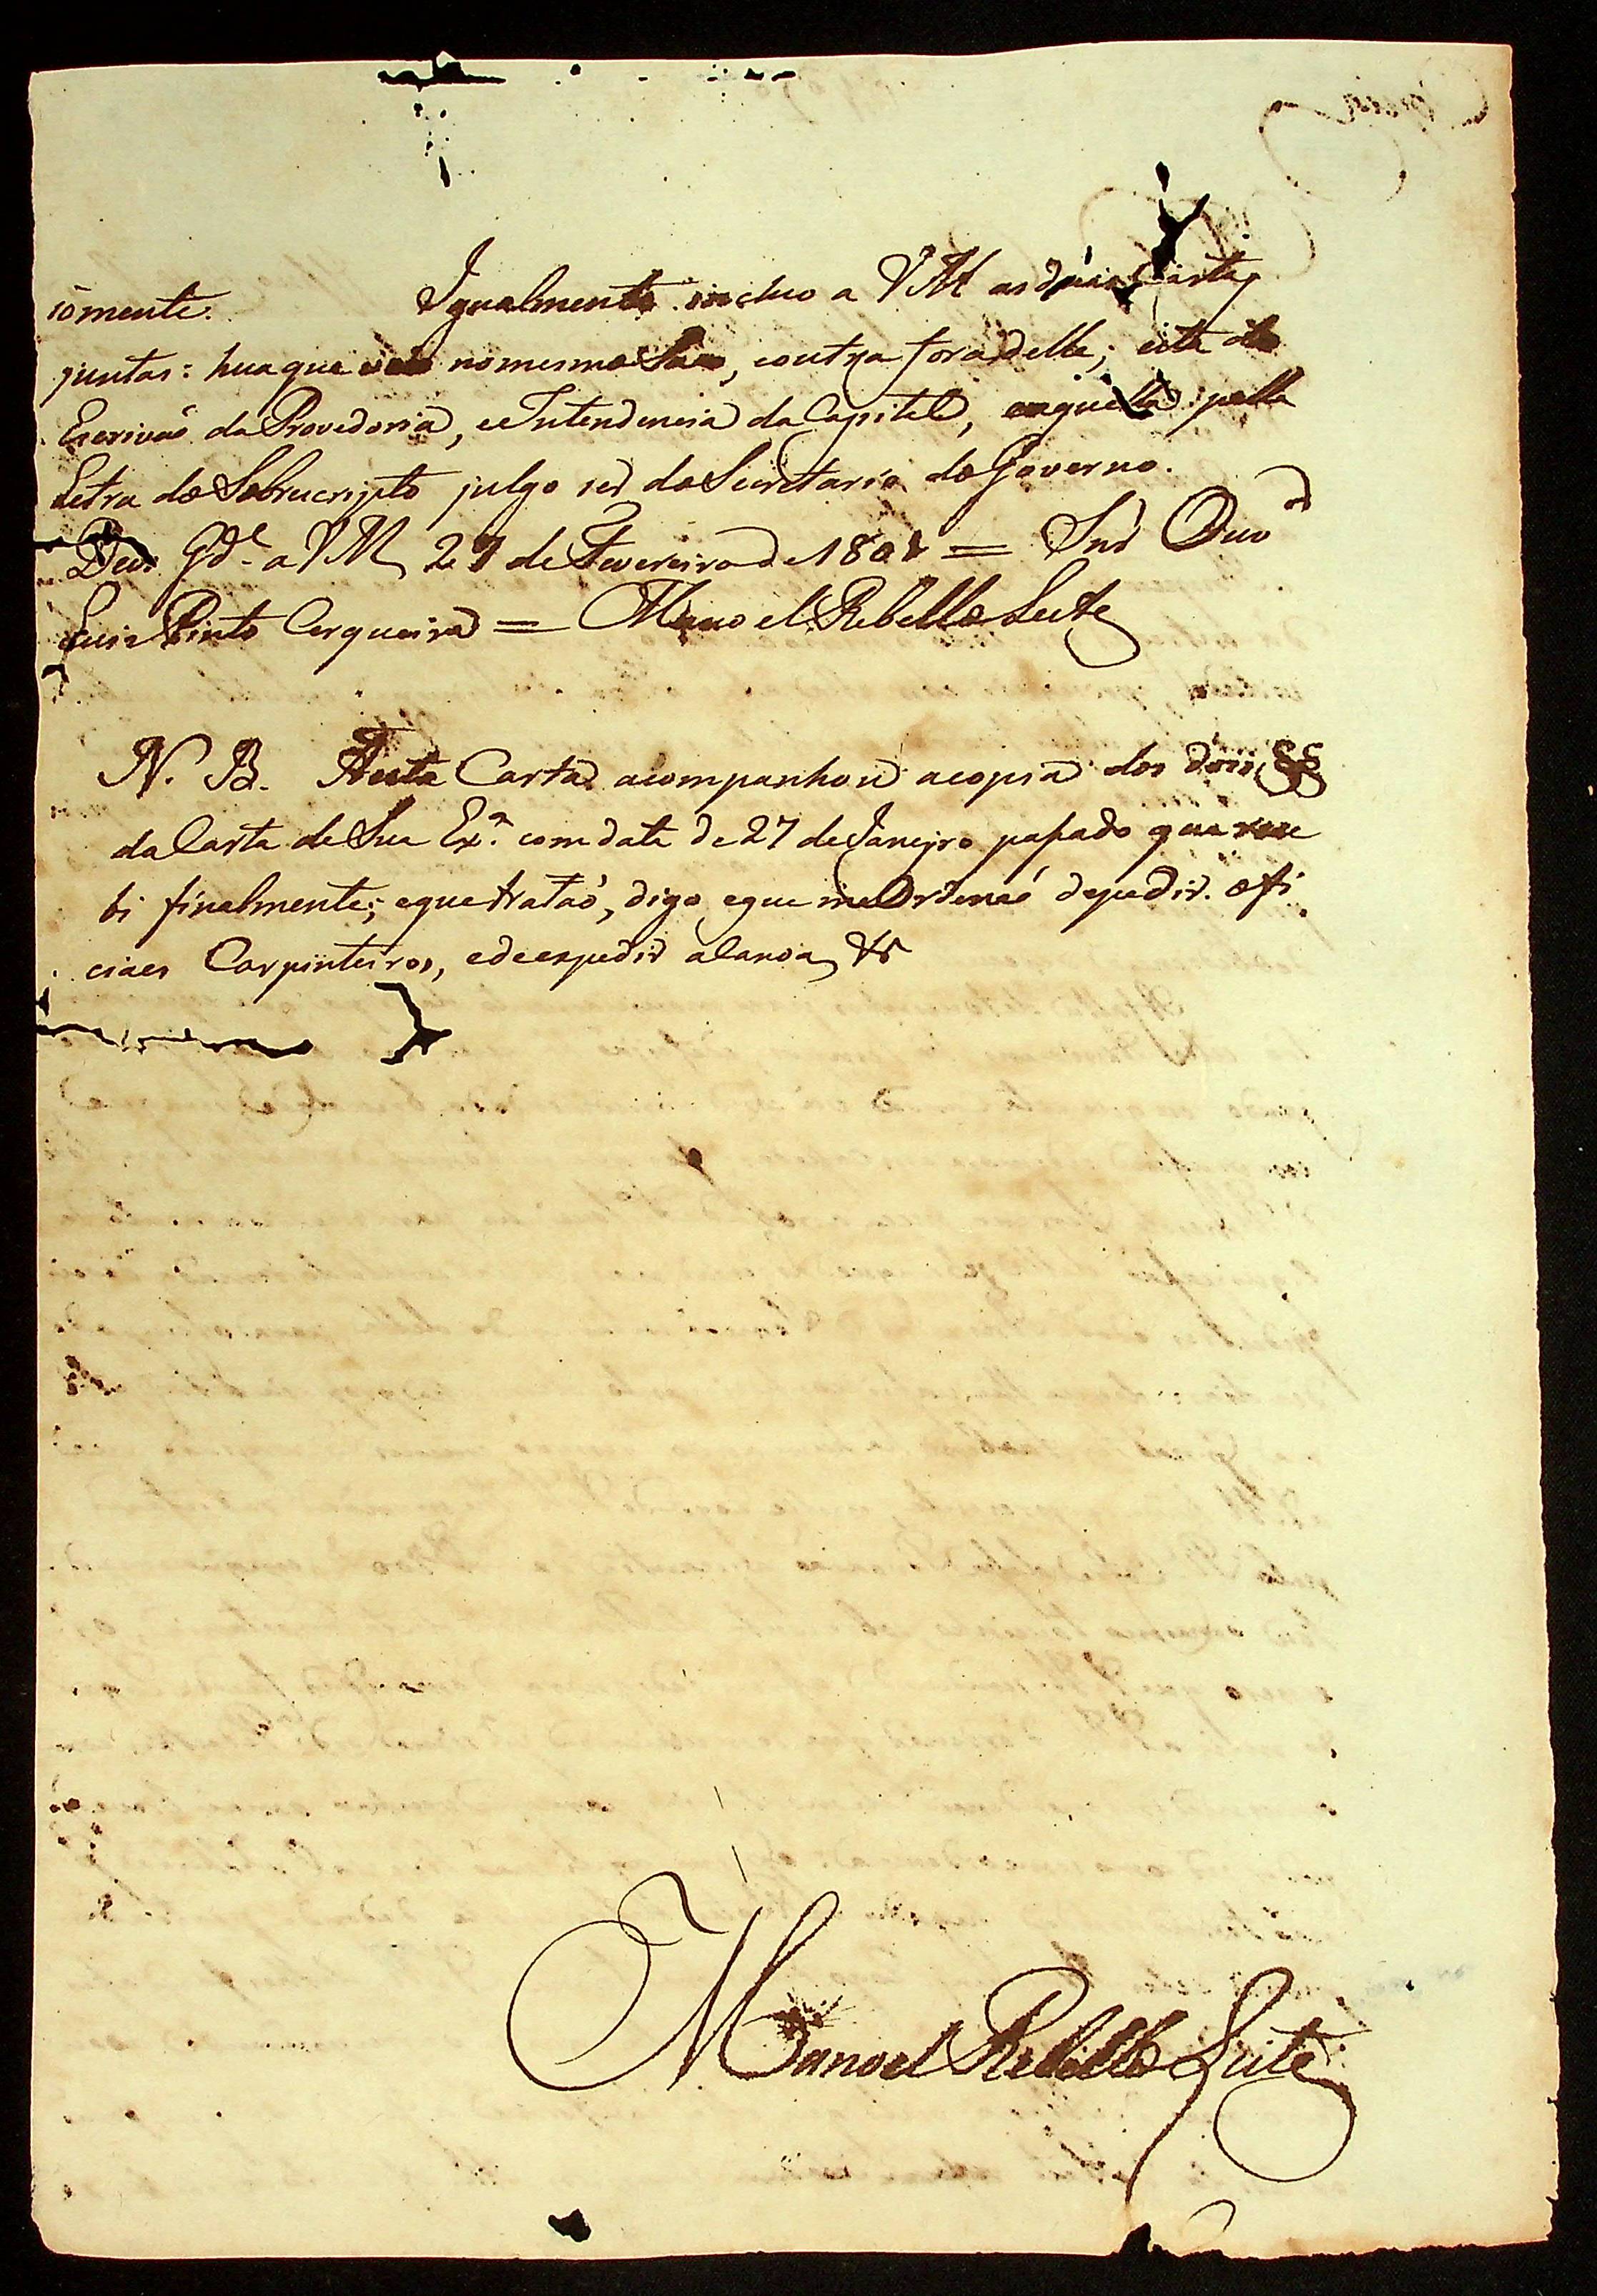 sómente. Igualmente incluo a VM as duas Cartas
juntas: hua que veio no mesmo Saco, e outra fora delle; esta do
Escrivaõ da Provedoria, e Intendencia da Capital, e aquella pella
Letra do Sobrescripto julgo ser do Secretario do Governo.
Deos Gde. a VM 27 de Fevereiro de 1801 = Snr Ouvor
Luis Pinto Cerqueira = Manoel Rebello Leite
N. B. Nesta Carta acompanhou a copia dos dois §§
da Carta de Sua Exa. com data de 27 de Janeiro passado que rece
bi finalmente; e que trataõ, digo, e que me Ordenaõ de pedir ofi
ciaes Carpinteiros, e de expedir a Canoa, &
Manoel Rebello Leite